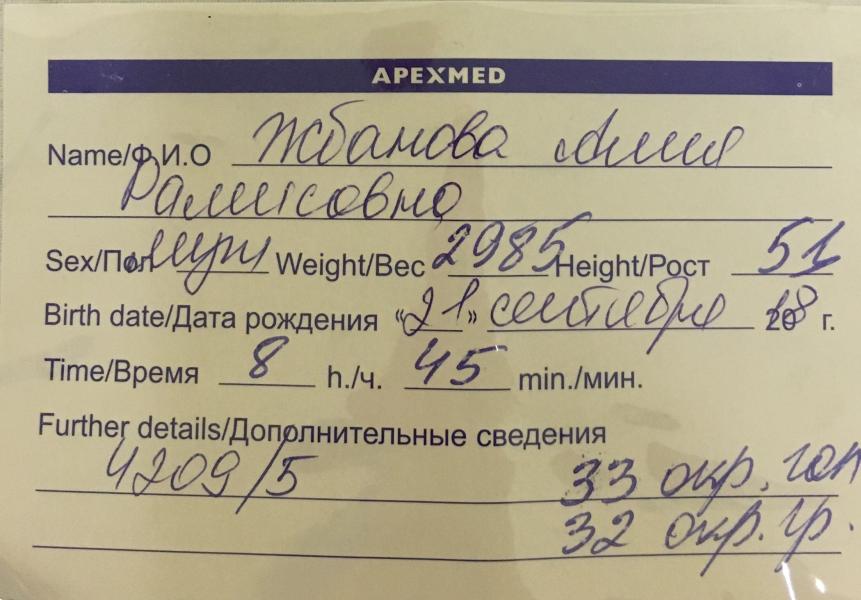 APEXMED
Name/Ф.И.О Жбанова Алия
Рамисовна
Sex/Пол муж Weight/Вес 2985 Height/Рост 51
Birth date/Дата рождения “21” сентября 2018 г.
Time/Время 8 h./ч. 45 min./мин.
Further details/Дополнительные сведения
4209/5 33 окр. гол
32 окр. гр.